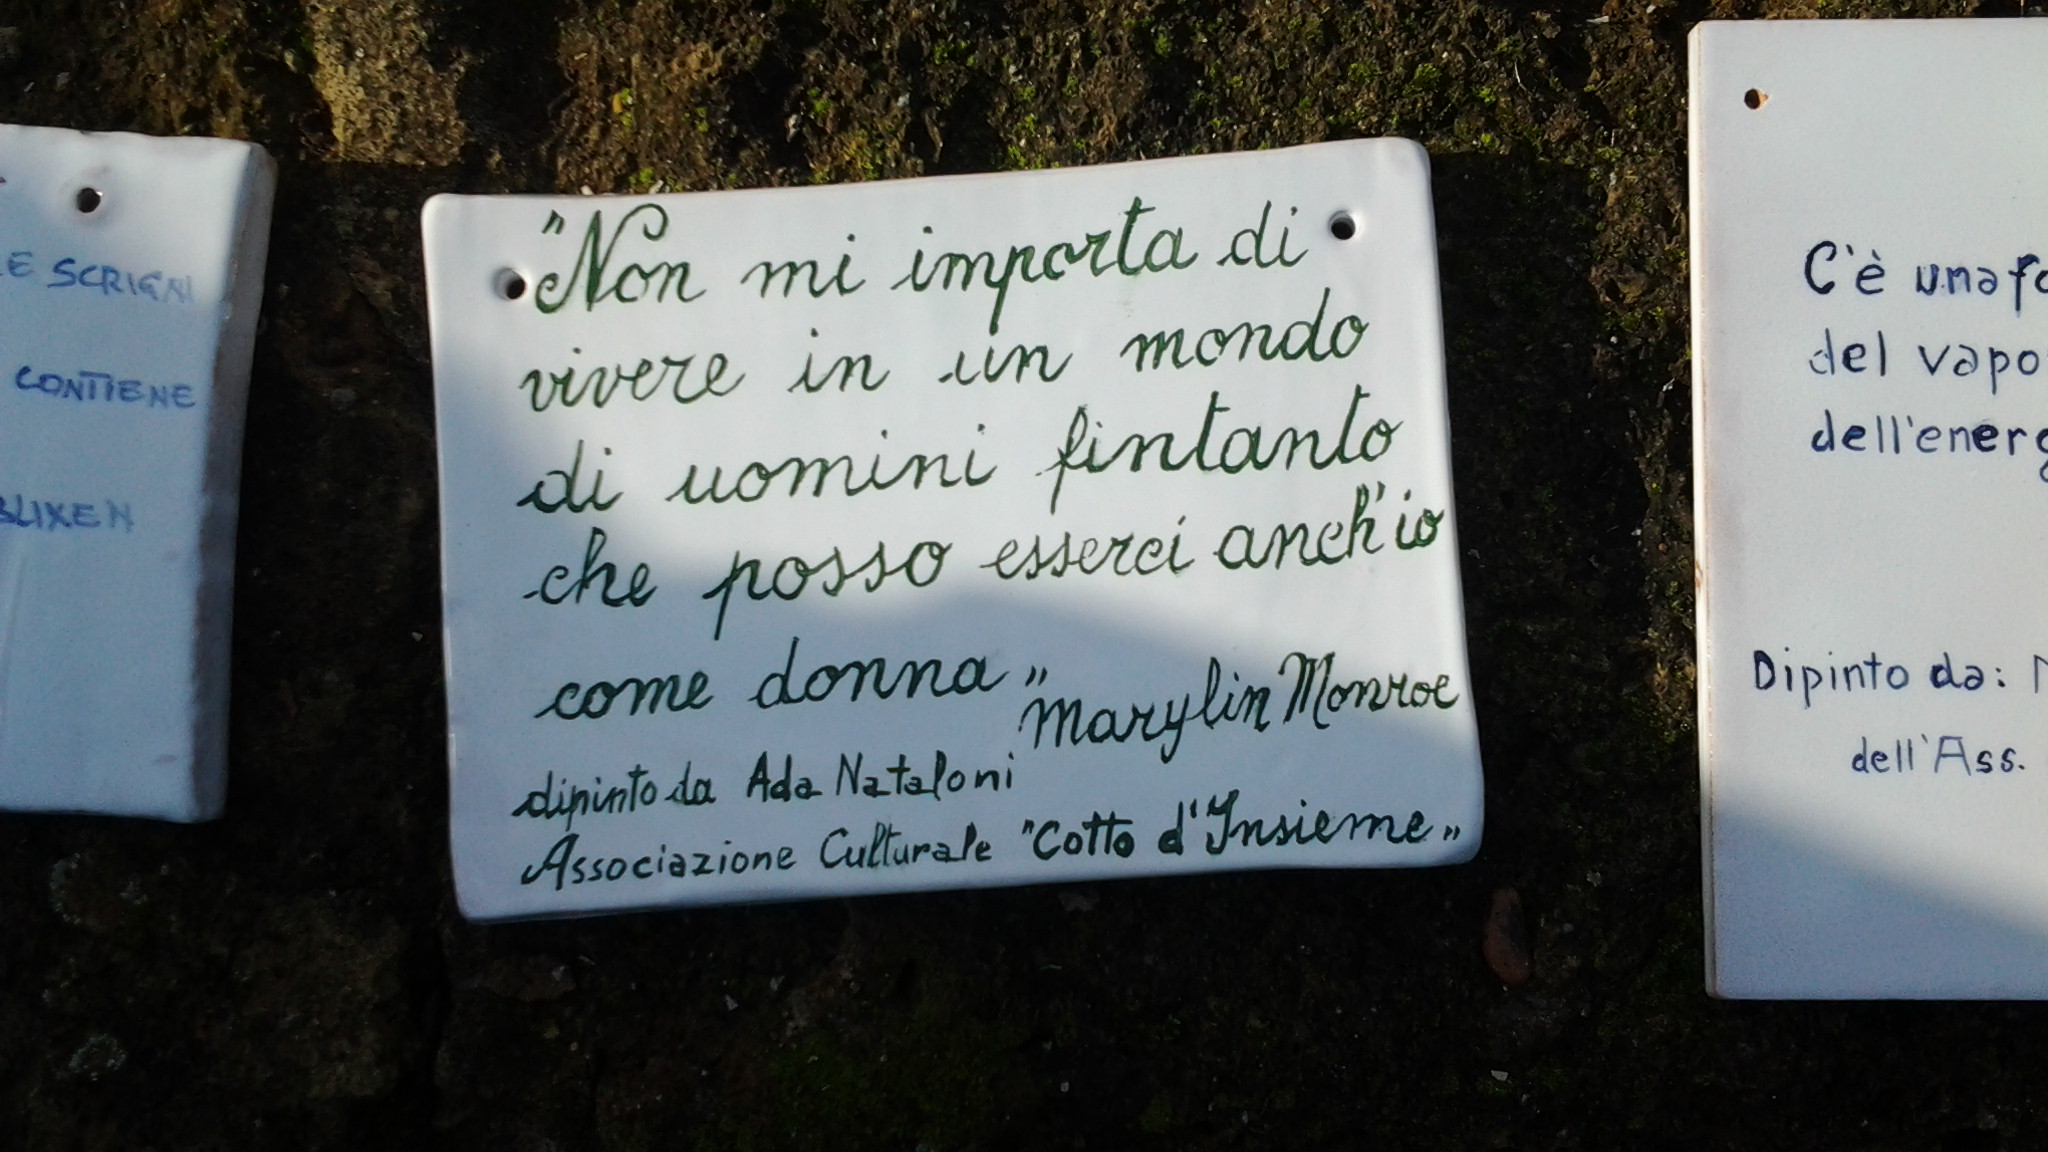 E SCRIGNI
CONTIENE
BLIXEN
"Non mi importa di
vivere in un mondo
di uomini fintanto
che posso esserci anch'io
come donna„
Marylin Monroe
dipinto da Ada Nataloni
Associazione Culturale "Cotto d'Insieme„
C'è una fo
del vapo
dell'energ
Dipinto da:
dell'Ass.